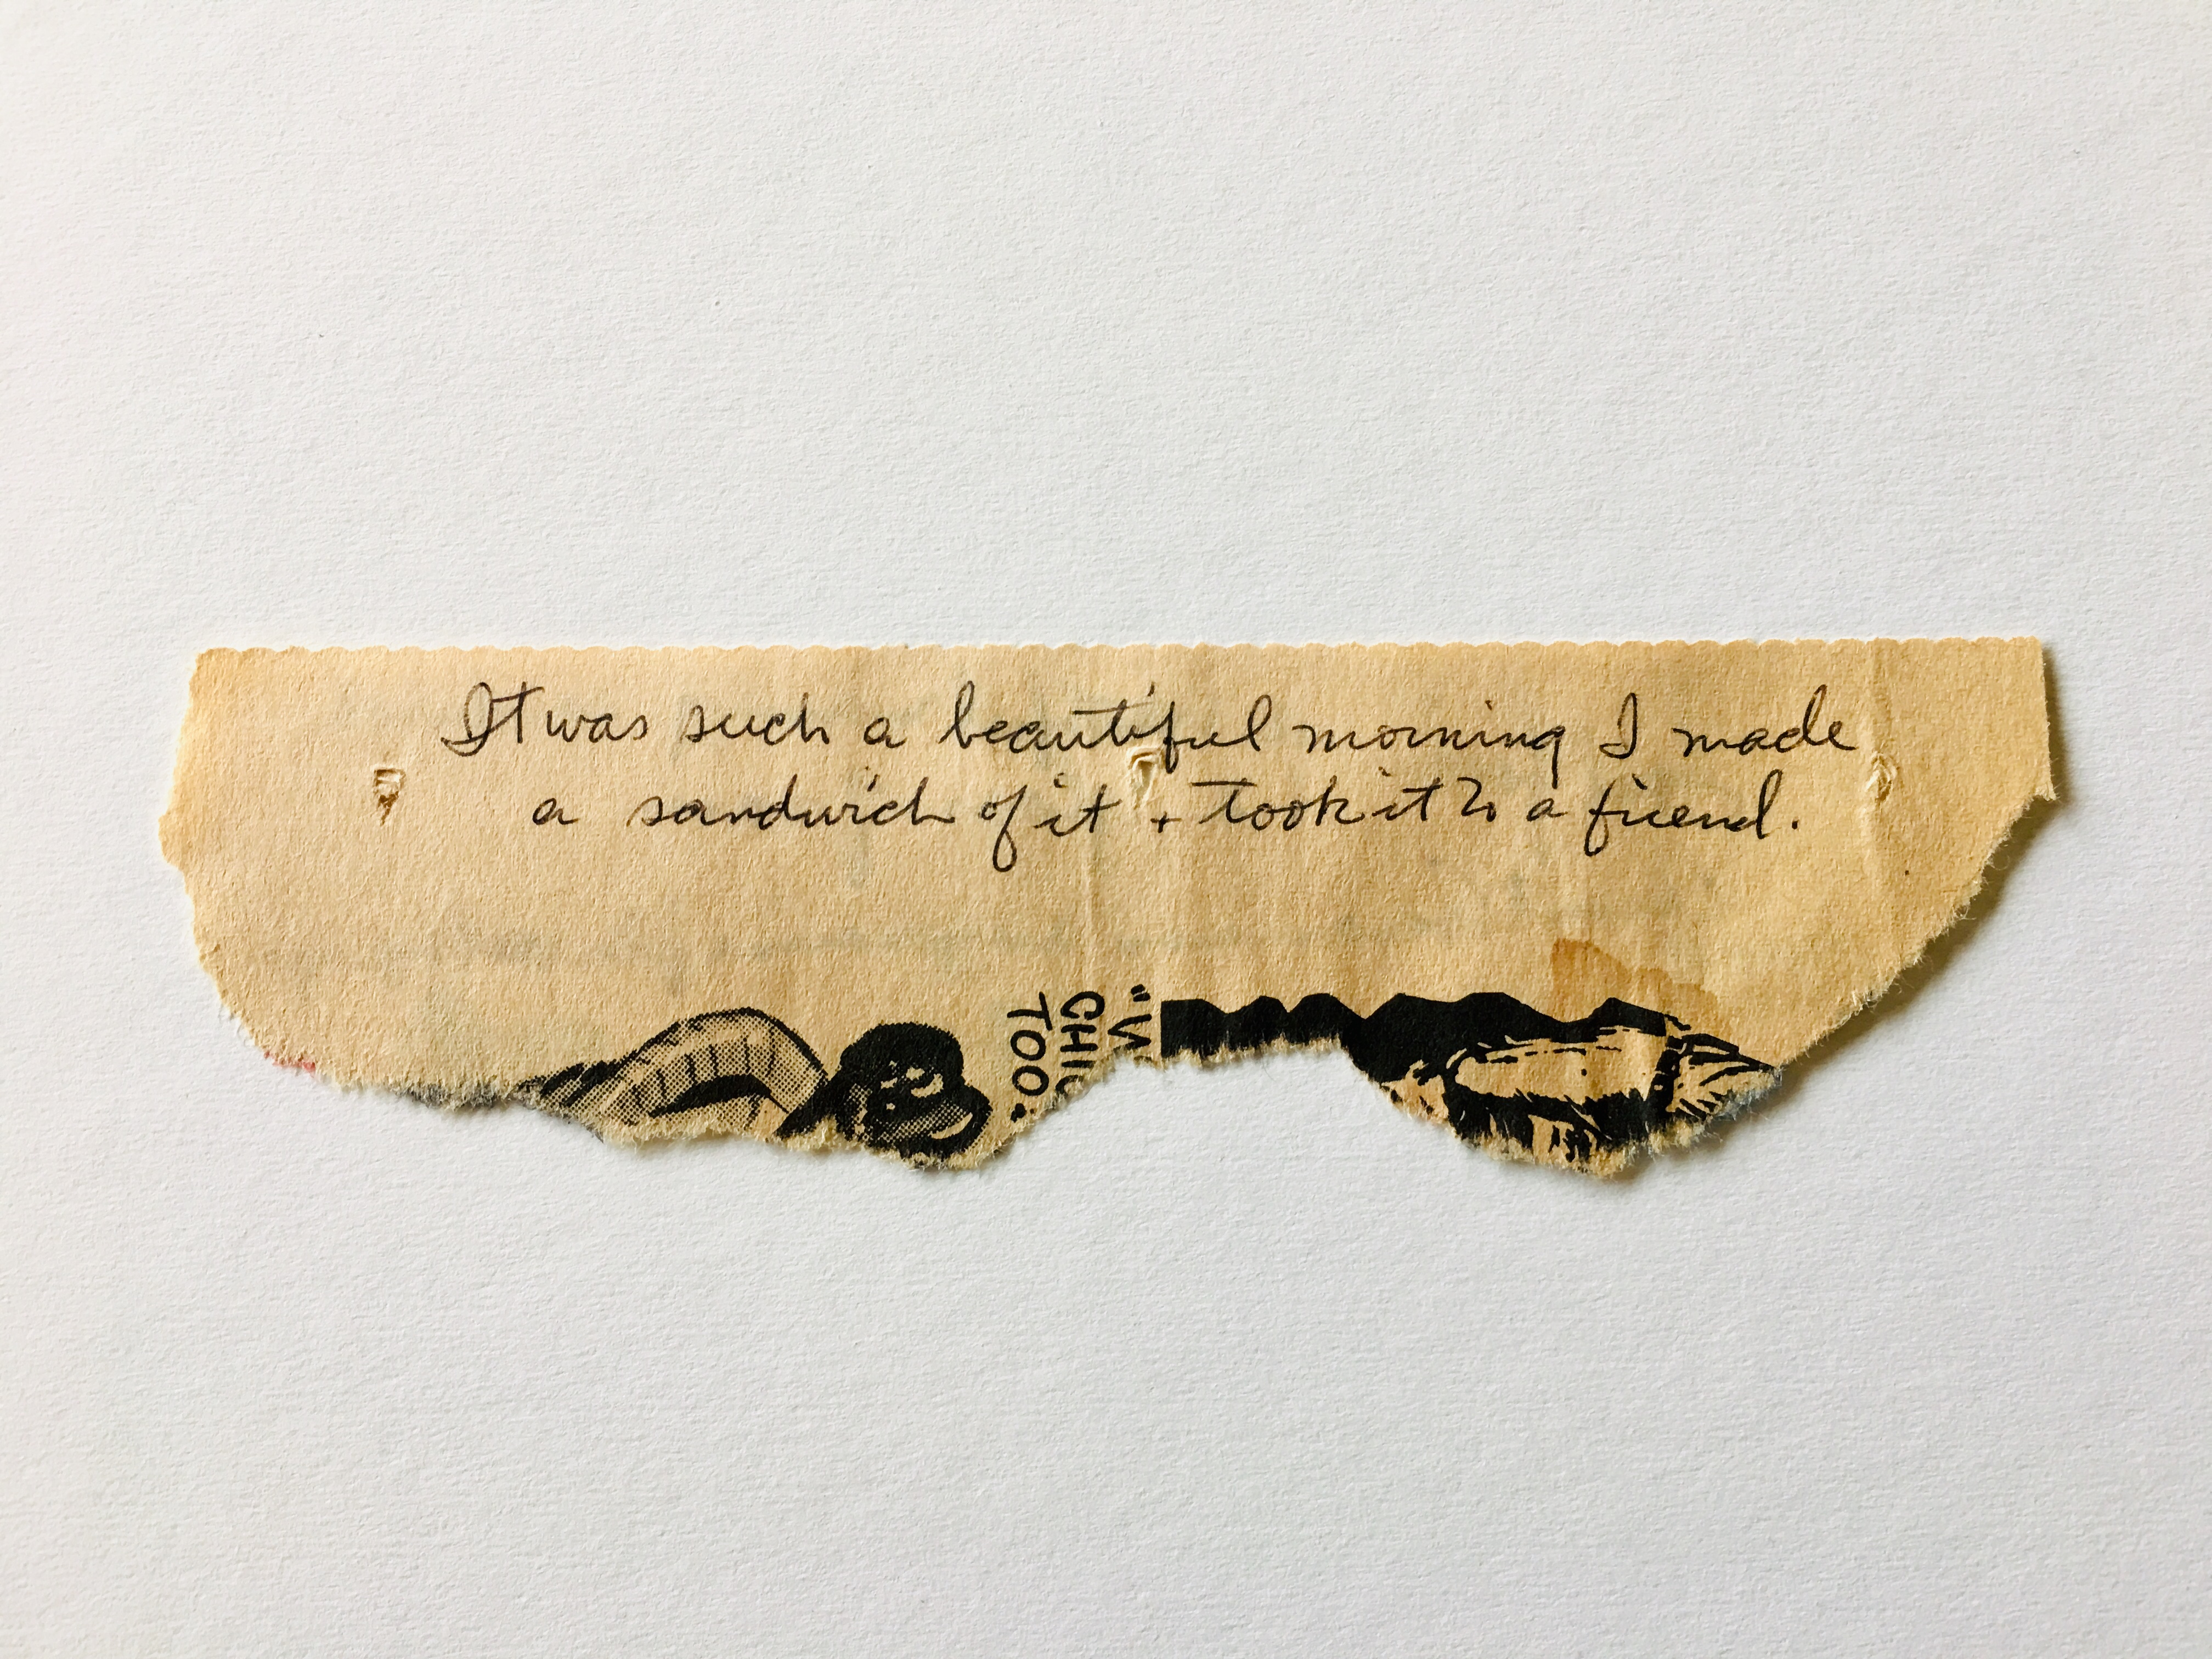 It was such a beautiful morning I made
a sandwich of it + took it to a friend.
"W
CHIC
TOO.